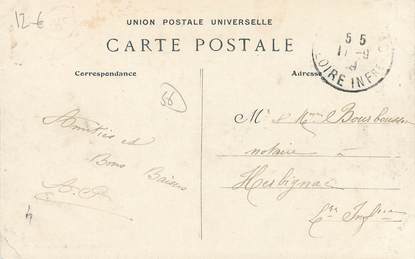 12 €
UNION POSTALE UNIVERSELLE
CARTE POSTALE
5 5
11 - 9
LOIRE INFRE
Correspondance
Adresse
56
Amitiés et
Bons Baisers
A. P.
Mr & Mme Bourbousson
notaire à
Herbignac
Lre Infre